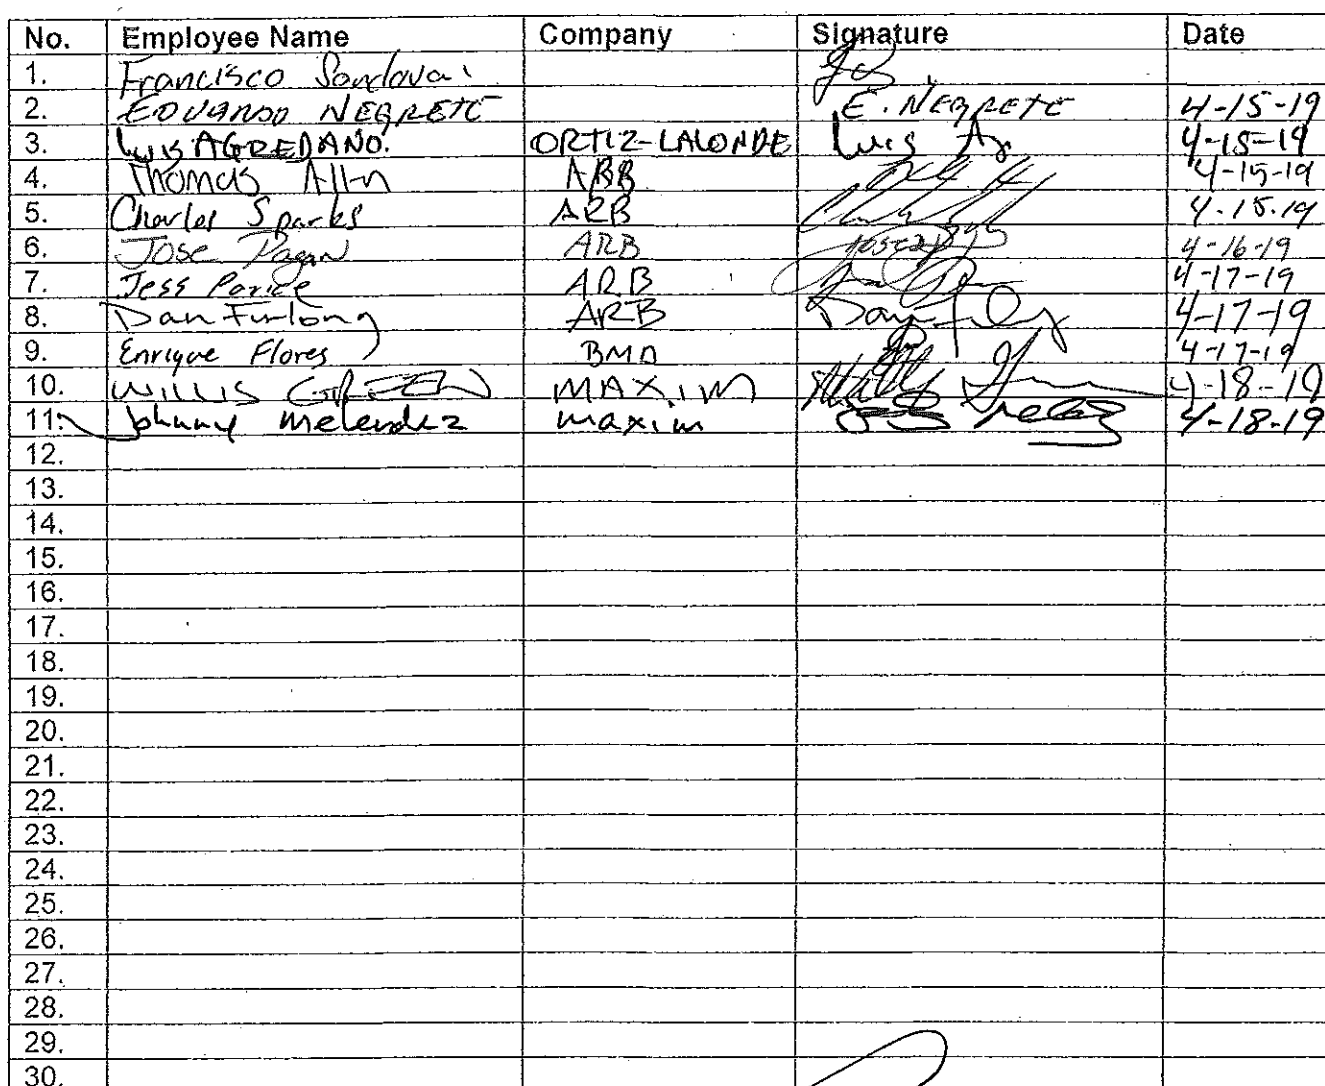 No. Employee Name Company Signature Date
1. Francisco Sandoval
2. EDUARDO NEGRETE E. NEGRETE 4-15-19
3. LUIS AGREDANO. ORTIZ-LALONDE Luis Ag 4-15-19
4. Thomas Allen ARB 4-15-19
5. Charles Sparks ARB 4-15-19
6. Jose Pagan ARB 4-16-19
7. Jess ARB 4-17-19
8. Dan Furlong ARB 4-17-19
9. Enrique Flores 4-17-19
10. WILLIS GREEN MAXIM 4-18-19
11. Johnny Melendez maxim 4-18-19
12.
13.
14.
15.
16.
17.
18.
19.
20.
21.
22.
23.
24.
25.
26.
27.
28.
29.
30.